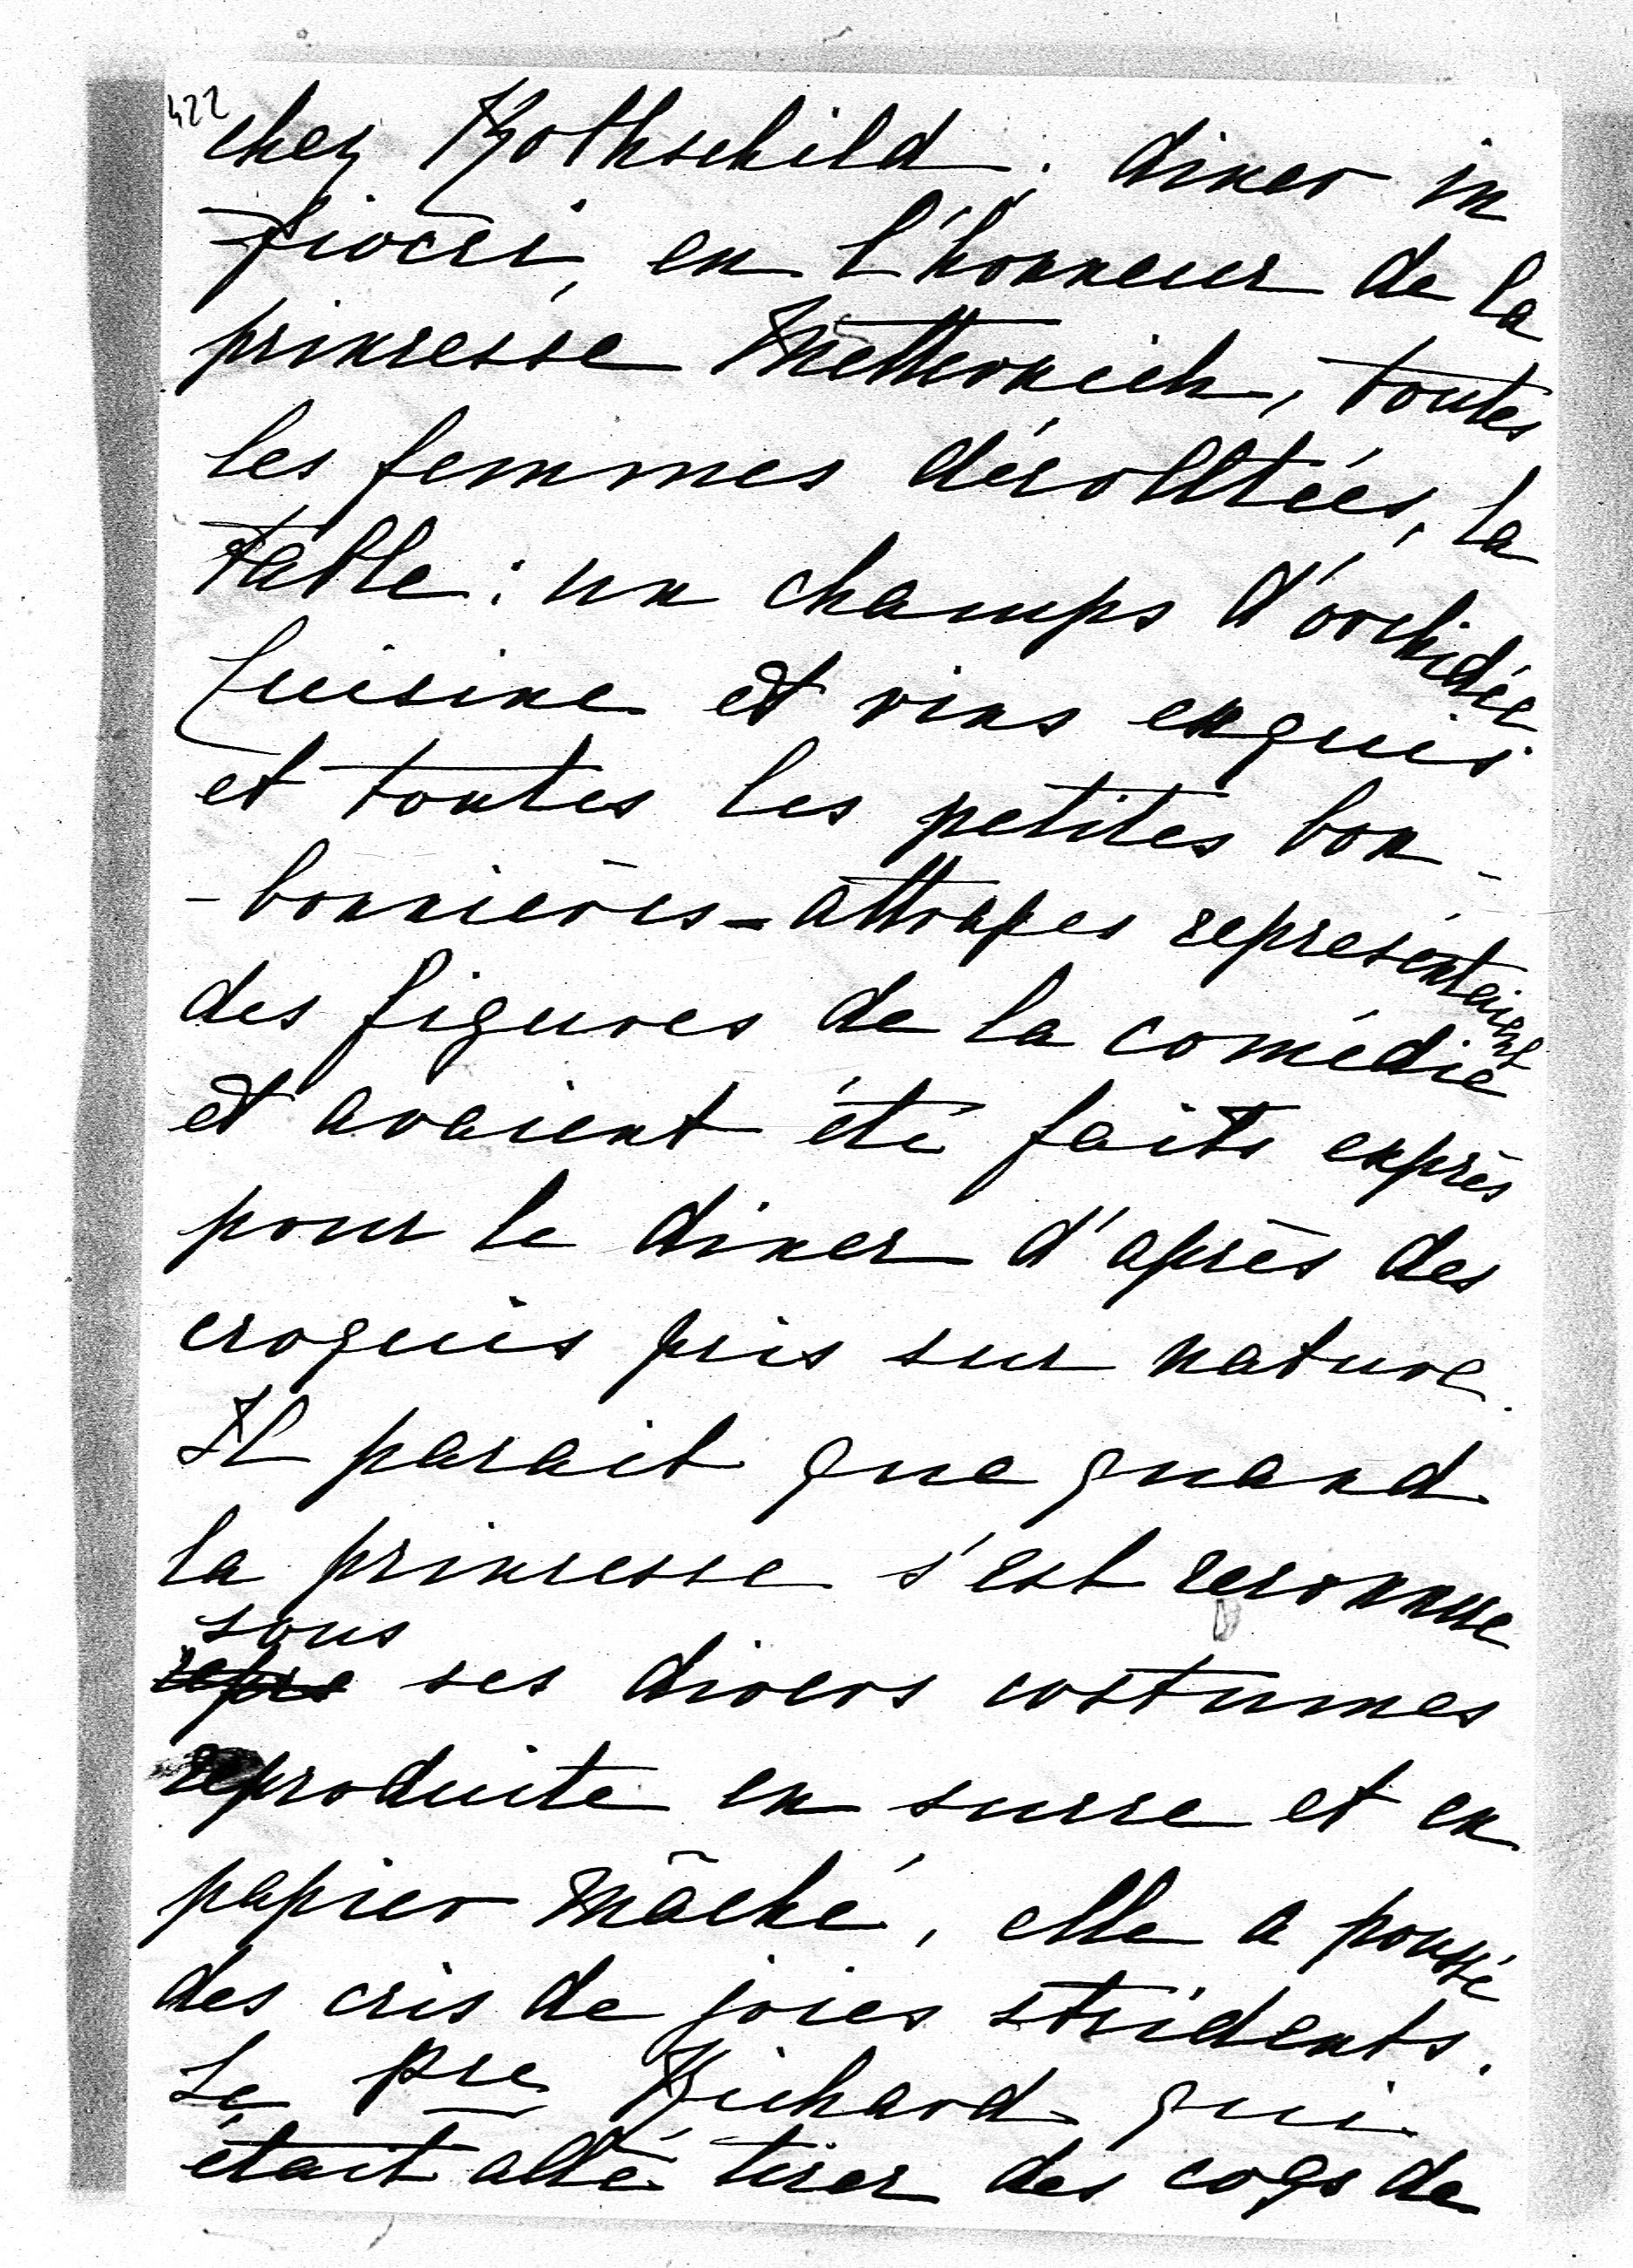 422
chez Rothschild; diner in
fiocci, en l'honneur de la
princesse Metternich, toutes
les femmes décolltées, la
table: un champs d'orchidée
Cuisine et vins exquis
et toutes les petites bon-
-bonnières-attrapes représentaient
des figures de la comédie
et avaient été faits exprès
pour le diner d'après des
croquis pris sur nature.
Il parait que quand
la princesse s'est reconnue
sous
repre ses divers costumes
reproduite en sucre et en
papier mâché, elle a poussé
des cris de joies stridents.
Le Pce Richard qui
était allé tirer des coqs de